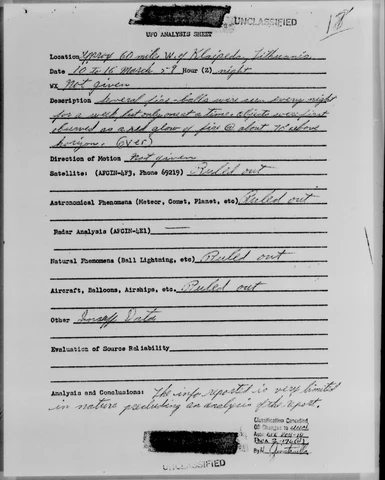 UNCLASSIFIED
UFO ANALYSIS SHEET
Location Approx 60 miles W. of Klaipeda, Lithuania
Date 10 to 16 March 59 Hour (Z) night
WX Not given
Description Several fire-balls were seen every night
for a week but only one at a time. Objects were first
observed as a red glow of fire @ about 70° above
horizon. (over)
Direction of Motion Not given
Satellite: (AFCIN-4F3, Phone 69219) Ruled out
Astronomical Phenomena (Meteor, Comet, Planet, etc) Ruled out
Radar Analysis (AFCIN-4E1) —
Natural Phenomena (Ball Lightning, etc) Ruled out
Aircraft, Balloons, Airships, etc. Ruled out
Other Insuff Data
Evaluation of Source Reliability
Analysis and Conclusions: The info reported is very limited
in nature precluding an analysis of the report.
Classification Cancelled
OR Changed to
Auth
By
UNCLASSIFIED